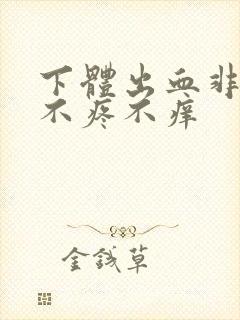 下體出血非
不疼不痒
金錢草